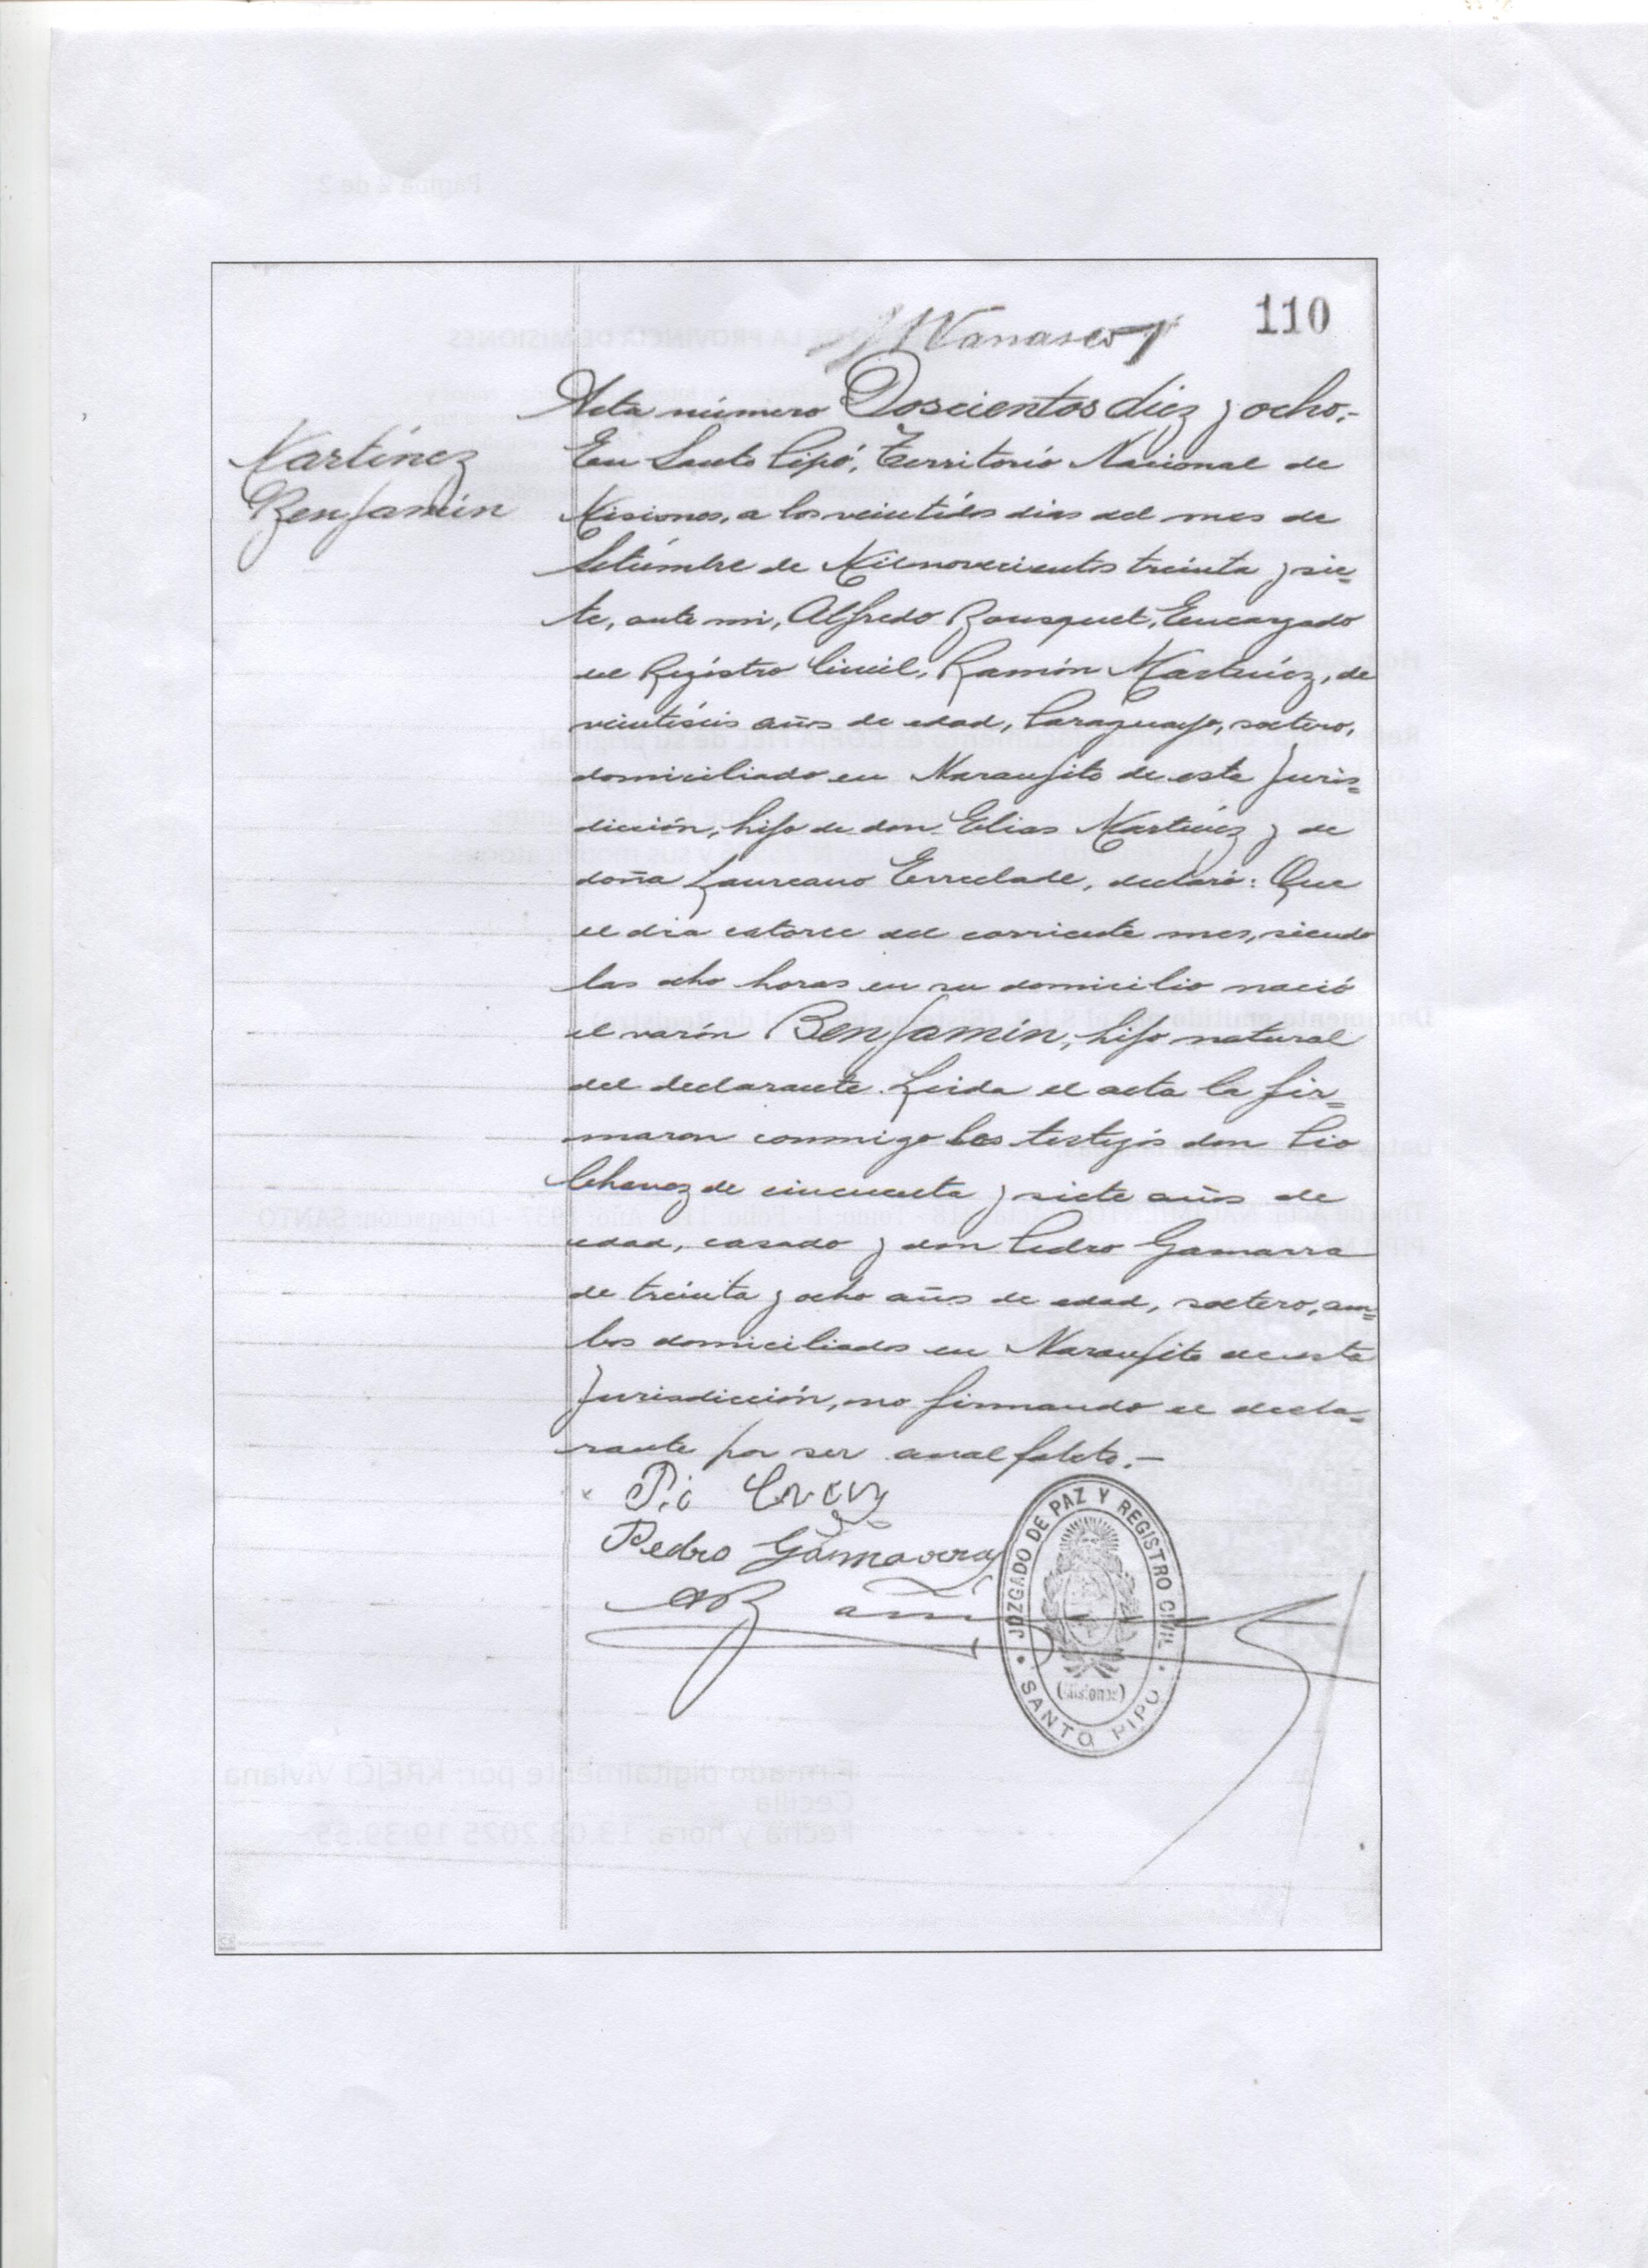 110
Acta número Doscientos diez y ocho.-
Martínez
Benjamín
En Santo Pipó, Territorio Nacional de
Misiones, a los veintidós dias del mes de
Setiembre de Milnovecientos treinta y sie=
te, ante mi, Alfredo Bousquet, Encargado
del Registro Civil, Ramón Martínez, de
veintiséis años de edad, Paraguayo, soltero,
domiciliado en Naranjito de esta Juris=
dicción, hijo de don Elias Martínez y de
doña Laureano, declaró: Que
el dia catorce del corriente mes, siendo
las ocho horas en su domicilio nació
el varón Benjamín, hijo natural
del declarante. Leida el acta la fir=
maron conmigo los testigos don Pio
Chavez de cincuenta y siete años de
edad, casado y don Pedro Gamarra
de treinta y ocho años de edad, soltero, am=
bos domiciliados en Naranjito de esta
Jurisdicción, no firmando el decla=
rante por ser analfabeto.-
Pio
Pedro Gamarra
JUZGADO DE PAZ Y REGISTRO CIVIL
(Misiones)
SANTO PIPÓ